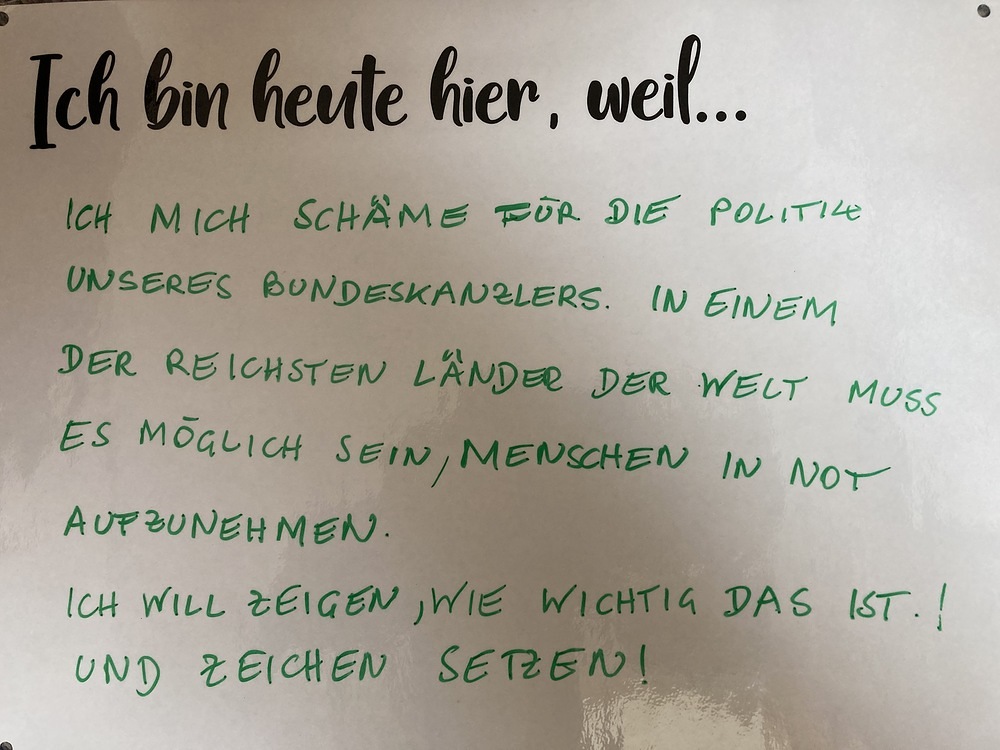 Ich bin heute hier, weil...
ICH MICH SCHÄME FÜR DIE POLITIK
UNSERES BUNDESKANZLERS. IN EINEM
DER REICHSTEN LÄNDER DER WELT MUSS
ES MÖGLICH SEIN, MENSCHEN IN NOT
AUFZUNEHMEN.
ICH WILL ZEIGEN, WIE WICHTIG DAS IST.!
UND ZEICHEN SETZEN!